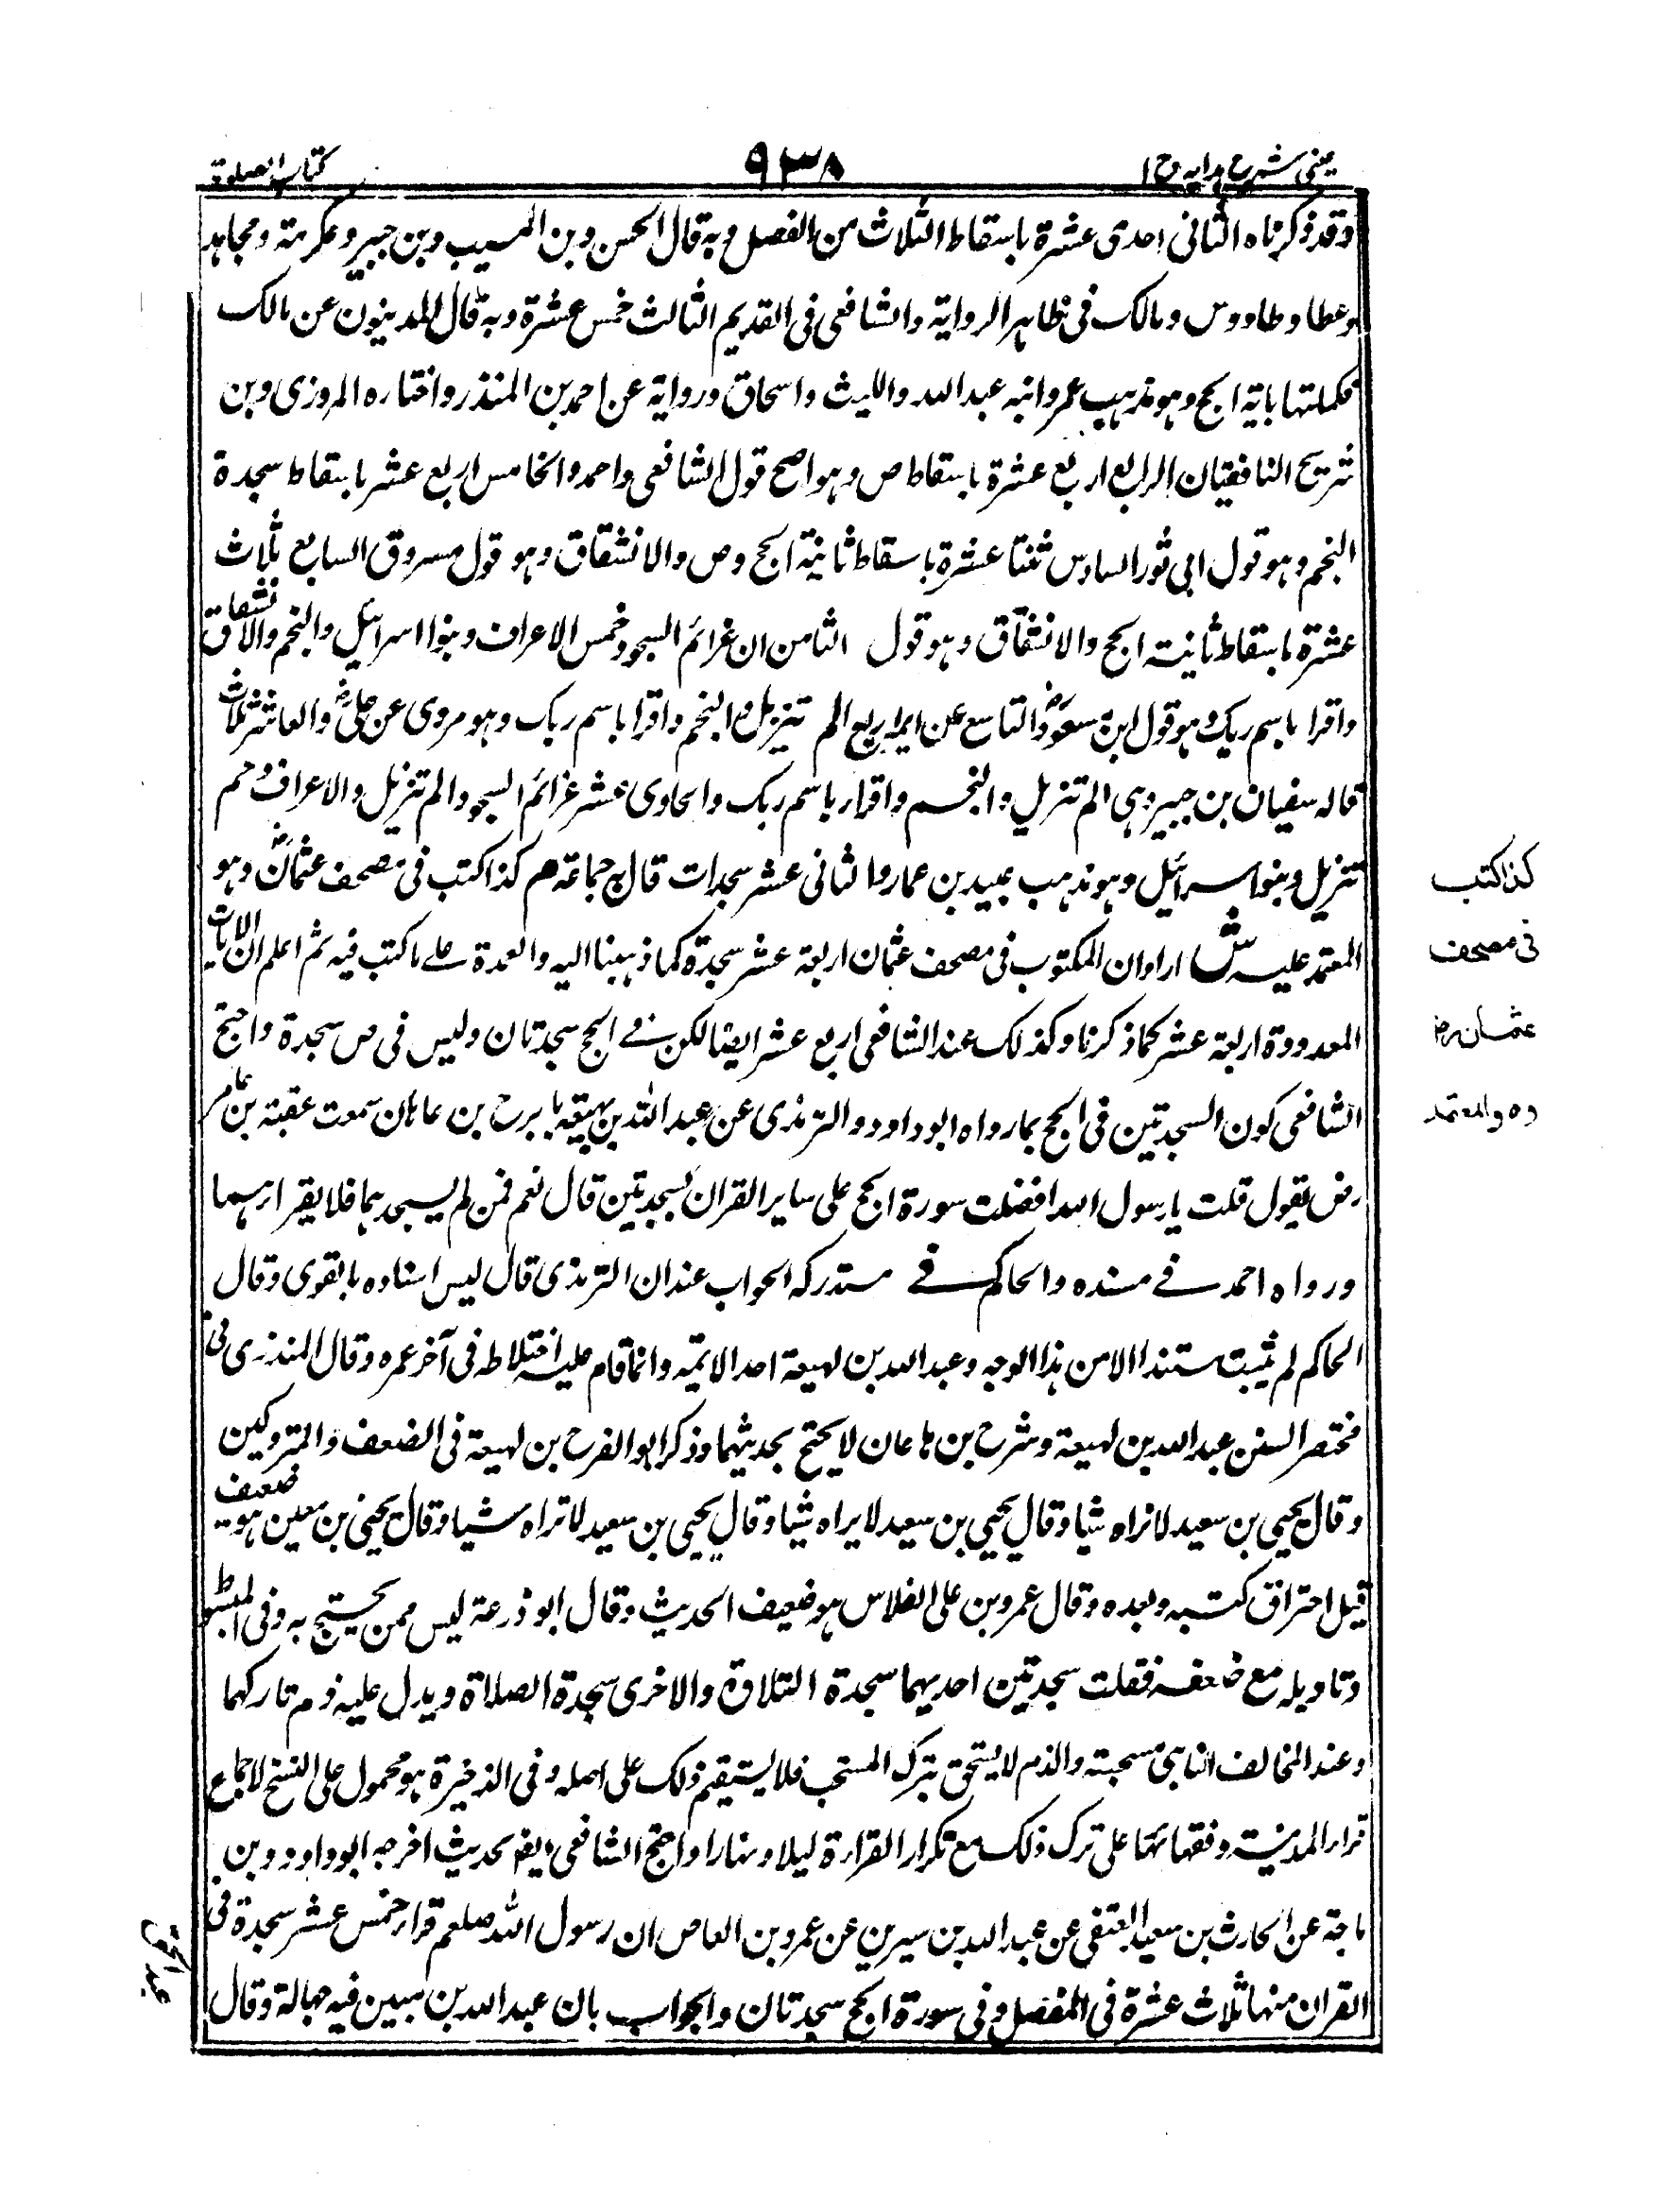 عینی شرح ہدایہ ج ۱
۹۳۸
کتاب الصلوة
وقد ذكرناه الثانى احدى عشرة باسقاط الثلاث من المفصل وبه قال الحسن وبن المسيب وبن جبير وعكرمة ومجاهد
وعطا وطاووس ومالك فى ظاہر الرواية والشافعى فى القديم الثالث خمس عشرة وبه قال المدنيون عن مالك
فكملتها باية الحج وہو مذہب عمر وابنه عبد الله والليث واسحاق ورواية عن احمد بن المنذر واختاره المروزى وبن
شريح الشافعيان الرابع اربع عشرة باسقاط ص وہو اصح قول الشافعى واحمد والخامس اربع عشر باسقاط سجدة
النجم وہو قول ابى ثور السادس ثنتا عشرة باسقاط ثانية الحج وص والانشقاق وہو قول مسروق السابع ثلاث
عشرة باسقاط ثانية الحج والانشقاق وہو قول الثامن ان عزائم السجود خمس الاعراف وبنوا اسرائيل والنجم والانشقاق
واقرا باسم ربك وہو قول ابن مسعود رض والتاسع عن اربع الم تنزيل والنجم واقرا باسم ربك وہو مروى عن على رض والعاشر ثلاث
قاله سفيان بن جبير وہى الم تنزيل والنجم واقرا باسم ربك والحاوى عشر عزائم السجود الم تنزيل والاعراف وحم
تنزيل وبنوا سرائيل وہو مذہب عبيد بن عمار والثانى عشر سجدات قال جماعة م كذا كتب فى مصحف عثمان رض وہو
المعتمد عليه ش اراد ان المكتوب فى مصحف عثمان اربعة عشر سجدة كما ذہبنا اليه والعمدة على ما كتب فيه ثم اعلم ان الايات
المعدودة اربعة عشر كما ذكرنا وكذلك عند الشافعى اربع عشر ايضا لكن فى الحج سجدتان وليس فى ص سجدة واحتج
الشافعى كون السجدتين فى الحج بما رواه ابو داود والترمذى عن عبد الله بن بن عاہان سمعت عقبة بن عامر
رض يقول قلت يا رسول الله افضلت سورة الحج على ساير القران بسجدتين قال نعم فمن لم يسجد بہما فلا يقرارہما
ورواه احمد فى مسنده والحاكم فى مستدركه الجواب عند ان الترمذى قال ليس اسناده بالقوى وقال
الحاكم لم يثبت مستندا الا من ہذا الوجه وعبد الله بن لہيعة احد الايمة وانما قام عليه اختلاطه فى آخر عمره وقال المنذرى فى
مختصر السنن عبد الله بن لہيعة وشرح بن ہاعان لا يحتج بحديثہما وذكر ابو الفرح بن لہيعة فى الضعف والمتروكين
وقال يحيى بن سعيد لا نراه شيا وقال يحيى بن سعيد لا يراه شيا وقال يحيى بن سعيد لا نراه شيا وقال يحيى بن معين ہو ضعيف
قبل احتراق كتبه وبعده وقال عمرو بن على الفلاس ہو ضعيف الحديث وقال ابو ذرعة ليس ممن يحتج به وفى المبسوط
وتاويله مع ضعفه فقلت سجدتين احديہما سجدة التلاوة والاخرى سجدة الصلاة ويدل عليه ذم تاركہما
وعند المخالف الثانية مستحبة والذم لا يستحق بترك المستحب فلا يستقيم ذلك على اصله وفى الذخيرة ہو محمول على النسخ لاجماع
قرار المدينة وفقہائہا على ترك ذلك مع تكرار القرارة ليلا ونہارا واحتج الشافعى ايضا بحديث اخرجه ابو داود وبن
ماجة عن الحارث بن سعيد العتقى عن عبد الله بن سيرين عن عمرو بن العاص ان رسول الله صلعم قرار خمس عشر سجدة فى
القران منہا ثلاث عشرة فى المفصل وفى سورة الحج سجدتان والجواب بان عبد الله بن مبين فيه جہالة وقال
كذا كتب
فى مصحف
عثمان رض
وہ والمعتمد
عبد الحق